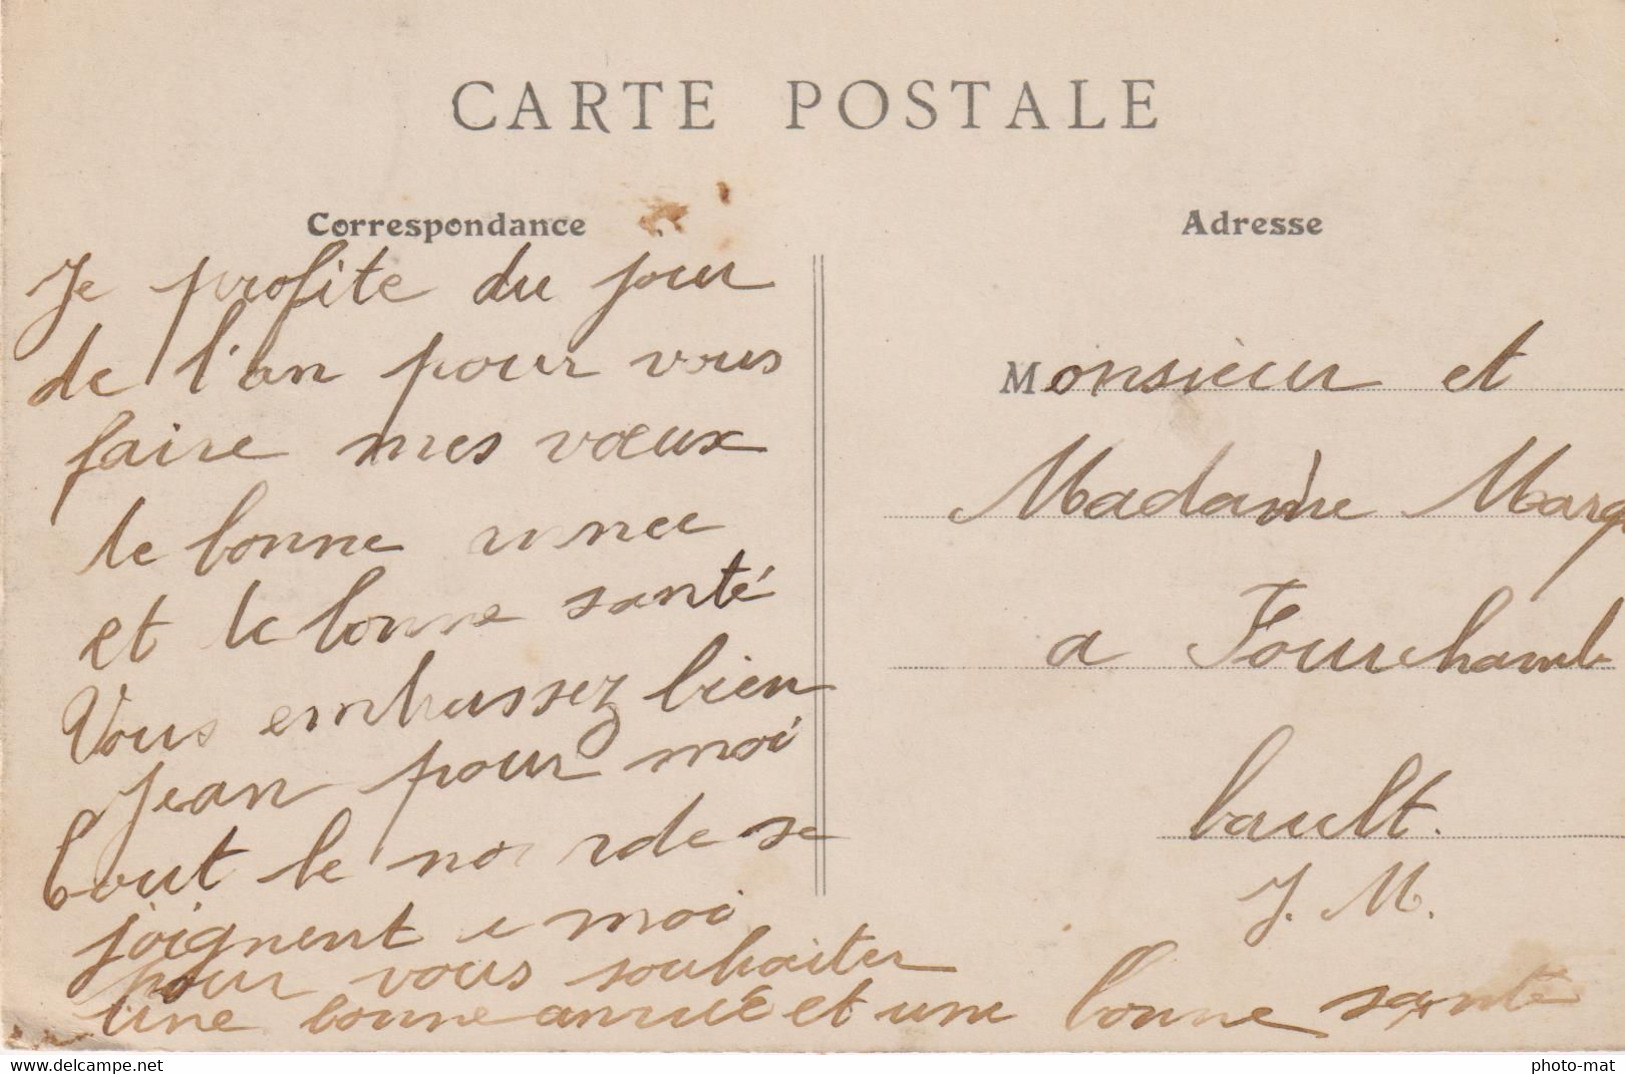 CARTE POSTALE
Correspondance
Je profite du jour
de l'an pour vous
faire mes vœux
de bonne annee
et de bonne santé
Vous embrassez bien
Jean pour moi
tout le monde se
joignent a moi
pour vous souhaiter
une bonne année et une bonne santé
Adresse
Monsieur et
Madame Marq
a Fourchamb
bault.
J. M.
www.delcampe.net
photo-mat